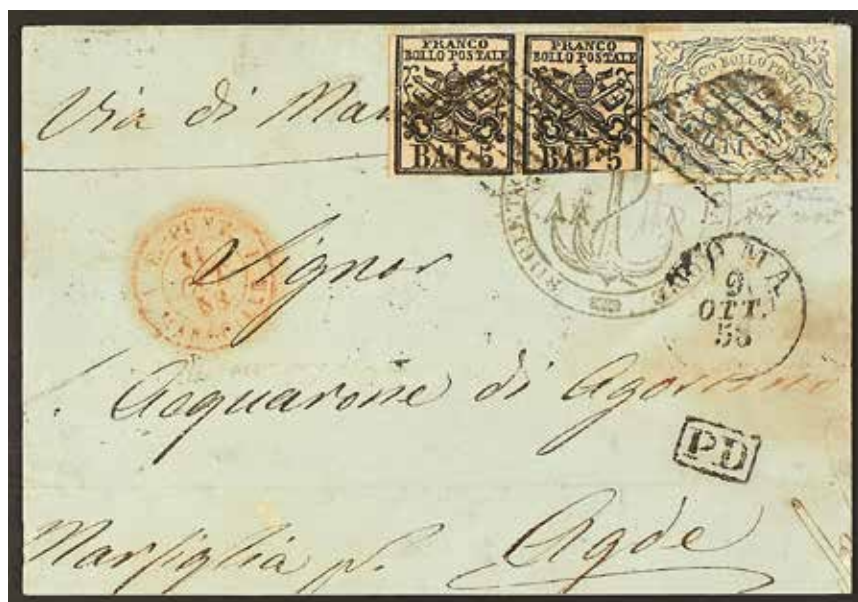 FRANCO
BOLLO POSTALE
BAJ. 5
FRANCO
BOLLO POSTALE
BAJ. 5
BOLLO POSTALE
50
Via di Mar
ROMA
9
OTT.
58
Signor
Acquarone di Agostino
PD
Marsiglia p. Agde